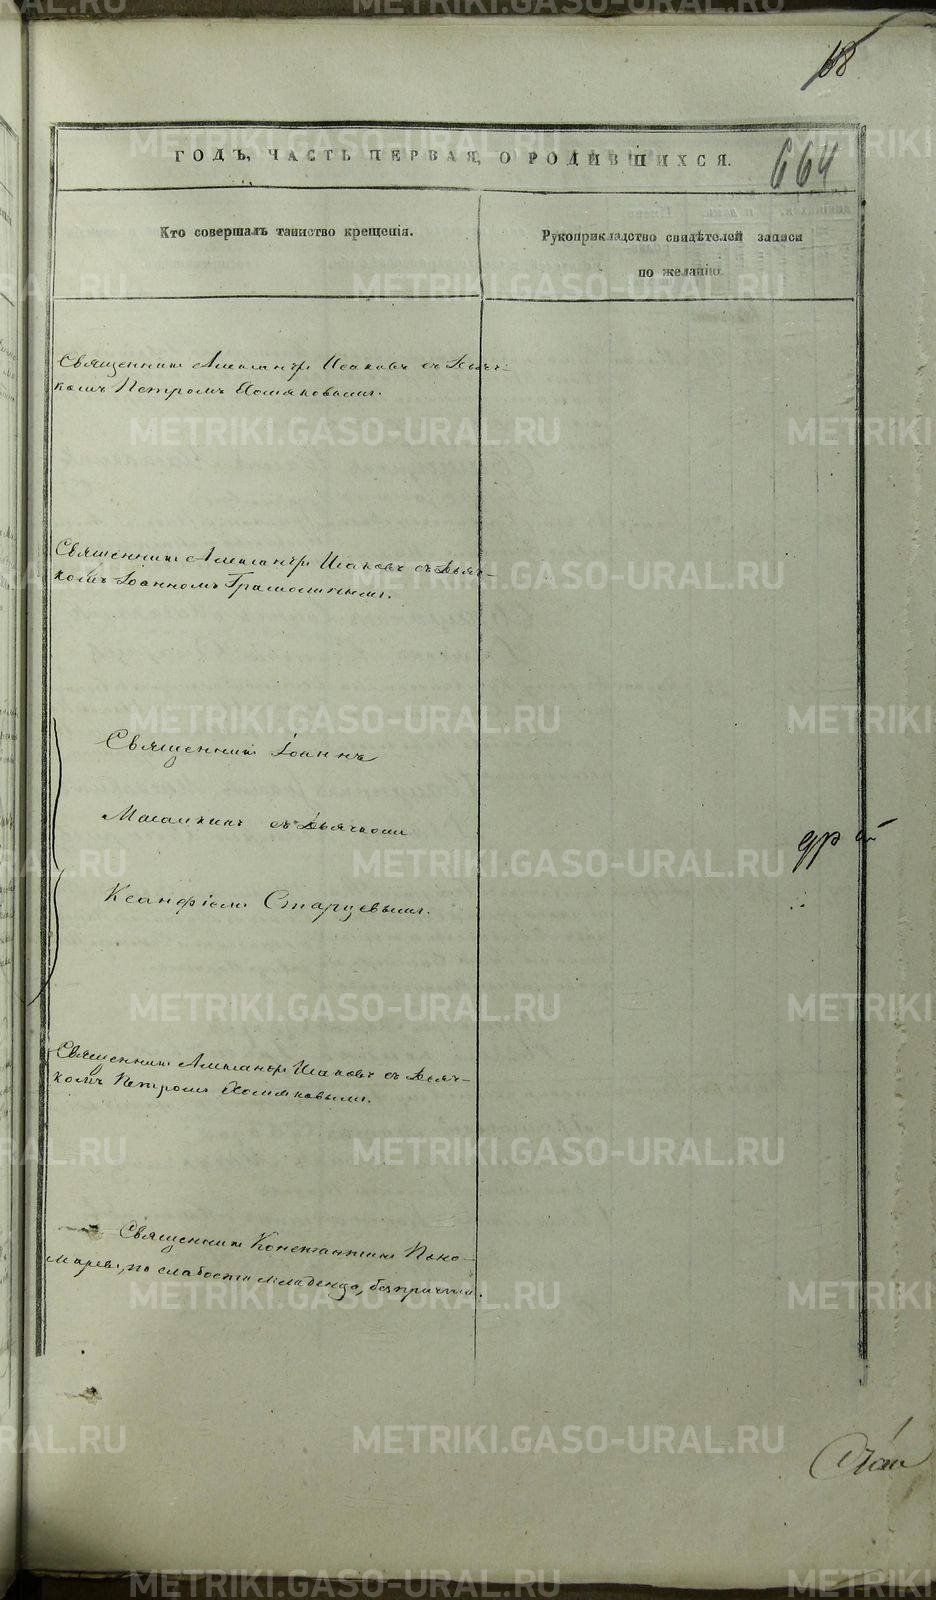 68
ГОДЪ, ЧАСТЬ ПЕРВАЯ, О РОДИВШИХСЯ.
664
Кто совершалъ таинство крещенія.
Рукоприкладство свидѣтелей записи
по желанію.
Священникъ Александръ Исаковъ съ дьяч-
комъ Петромъ Хомяковымъ.
Священникъ Александръ Исаковъ съ дьяч-
комъ Іоанномъ Грамолинымъ.
Священникъ Іоаннъ
съ дьячкомъ
Ксанфіемъ Старцевымъ.
Священникъ Александръ Исаковъ съ дьяч-
комъ Петромъ Хомяковымъ.
Священникъ Константинъ Поно-
маревъ, по слабости младенца, безъ причта.
METRIKI.GASO-URAL.RU